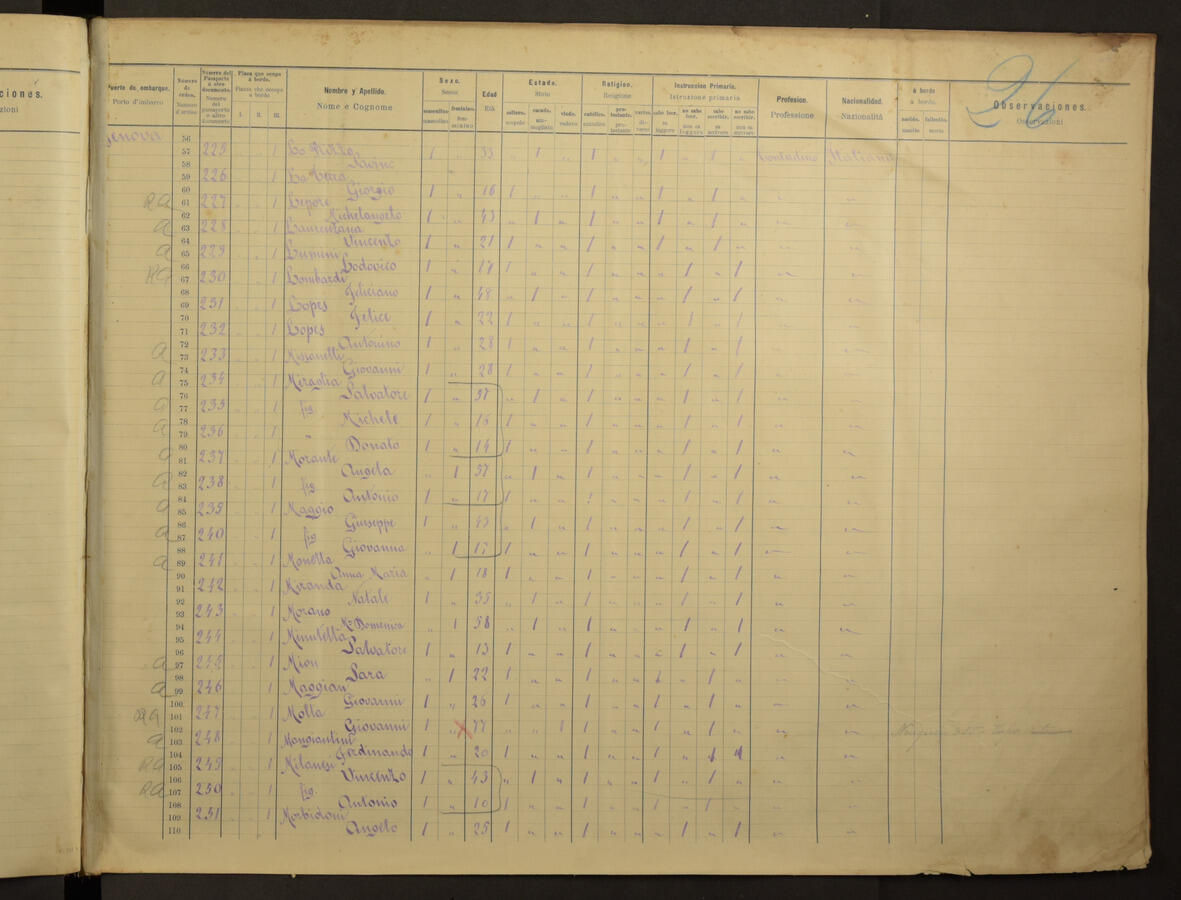 ciones.
zioni
26
Puerto de embarque.
Porto d'imbarco
Número de orden.
Numero d'ordine
Número del Pasaporte u otro documento.
Numero del passaporto o altro documento
Plaza que ocupa á bordo.
Piazza che occupa a bordo
I. II. III.
Nombre y Apellido.
Nome e Cognome
Sexo.
Sesso
masculino femenino.
mascolino femminino
Edad
Età
Estado.
Stato
soltero. casado. viudo.
scapolo ammogliato vedovo
Religion.
Religione
católico. protestante. varios.
cattolico protestante diverse
Instruccion Primaria.
Istruzione primaria
sabe leer. no sabe leer. sabe escribir. no sabe escribir.
sa leggere non sa leggere sa scrivere non sa scrivere
Profesion.
Professione
Nacionalidad.
Nazionalità
á bordo
a bordo.
nacido. fallecido.
nascito morto
Observaciones.
Osservazioni
Genova 56
57 225 1 Lo 1 33 1 1 1 1 Contadino Italiana
58
59 226 1
60 Giorgio 1 " 16 1 1 1 1
RA 61 227 1 Lepore
62 Michelangelo 1 " 43 1 1 1 1
a 63 228 1 Laurenzana
64 Vincenzo 1 " 21 1 1 1 1
a 65 229 1
66 Lodovico 1 " 17 1 1 1 1
RA 67 230 1 Lombardi
68 Feliciano 1 " 48 1 1 1 1
69 231 1 Lopes
70 Felice 1 " 22 1 1 1 1
71 232 1 Lopes
72 Antonino 1 " 28 1 1 1 1
a 73 233 1 Missanelli
74 Giovanni 1 " 28 1 1 1 1
a 75 234 1 Miraglia
76 Salvatore 1 " 37 1 1 1 1
a 77 235 1 fig
78 Michele 1 " 16 1 1 1 1
a 79 236 1 "
80 Donato 1 " 14 1 1 1 1
a 81 237 1 Morante
82 Angela " 1 37 1 1 1 1
a 83 238 1 fig
84 Antonio 1 " 17 1 1 1 1
a 85 239 1 Maggio
86 Giuseppe 1 " 43 1 1 1 1
a 87 240 1 fig
88 Giovanna " 1 17 1 1 1 1
a 89 241 1 Monella
90 Anna Maria " 1 18 1 1 1 1
91 242 1 Miranda
92 Natale 1 " 35 1 1 1 1
93 243 1 Morano
94 Mª Domenica " 1 58 1 1 1 1
95 244 1 Minutella
96 Salvatore 1 " 13 1 1 1 1
a 97 245 1 Mion
98 Sara " 1 22 1 1 1 1
a 99 246 1 Maggian
100 Giovanni 1 " 26 1 1 1 1
RA 101 247 1 Molla
102 Giovanni 1 " 77 1 1 1 1
a 103 248 1 Mongiantini
104 Ferdinando 1 " 20 1 1 1 1
RA 105 249 1 Milanesi
106 Vincenzo 1 " 43 1 1 1 1
RA 107 250 1 fig.
108 Antonio 1 " 10 1 1 1 1
109 251 1 Morbidoni
110 Angelo 1 " 25 1 1 1 1